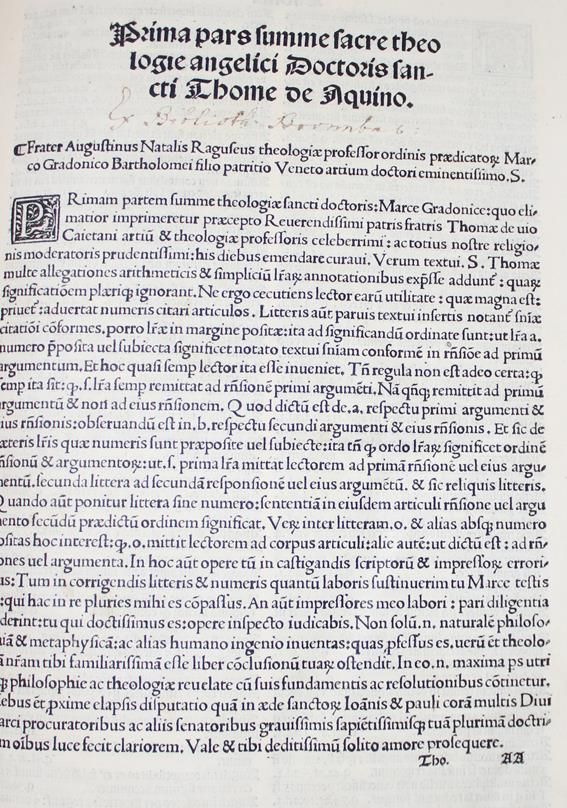 Prima pars summe sacre theo
logie angelici Doctoris san-
cti Thome de Aquino.
Ex Biblioth.
¶Frater Augustinus Natalis Raguseus theologiæ professor ordinis prædicatoꝝ Mar-
co Gradonico Bartholomei filio patritio Veneto artium doctori eminentissimo. S.
PRimam partem summe theologiæ sancti doctoris: Marce Gradonice: quo eli-
matior imprimeretur præcepto Reuerendissimi patris fratris Thomæ de uio
Caietani artiū & theologiæ professoris celeberrimi: ac totius nostre religio-
nis moderatoris prudentissimi: his diebus emendare curaui. Verum textui. S. Thomæ
multe allegationes arithmeticis & simpliciū lr̄aꝝ annotationibus exp̄sse addunt᷑: quaꝝ
significatiōem pleriqꝫ ignorant. Ne ergo cecutiens lector earū utilitate: quæ magna est:
priuet᷑: aduertat numeris citari articulos. Litteris aūt paruis textui insertis notant᷑ sn̄iæ
citatiōi cōformes. porro lr̄æ in margine positæ: ita ad significandū ordinate sunt: ut lr̄a a.
numero p̄posita uel subiecta significet notato textui sn̄iam conformē in rn̄siōe ad primū
argumentum. Et hoc quasi semp lector ita esse inueniet. Tn̄ regula non est adeo certa: ꝙ
semp ita sit: ꝙ. s. lr̄a semp remittat ad rn̄sionē primi argumēti. Nā qn̄qꝫ remittit ad primū
argumentū & non ad eius rn̄sionem. Quod dictū est de. a. respectu primi argumenti &
eius rn̄sionis: obseruandū est in. b. respectu secundi argumenti & eius rn̄sionis. Et sic de
cæteris lr̄is quæ numeris sunt præposite uel subiecte: ita tn̄ ꝙ ordo lr̄aꝝ significet ordinē
rn̄sionū & argumentoꝝ: ut. s. prima lr̄a mittat lectorem ad primā rn̄sionē uel eius argu-
mentū. secunda littera ad secundā responsionē uel eius argumētū. & sic reliquis litteris.
Quando aūt ponitur littera sine numero: sententiā in eiusdem articuli rn̄sione uel argu
mento secūdū prædictū ordinem significat. Veꝝ inter litteram. o. & alias absqꝫ numero
positas hoc interest: ꝙ. o. mittit lectorem ad corpus articuli: alie autē: ut dictū est: ad rn̄-
ones uel argumenta. In hoc aūt opere tū in castigandis scriptorū & impressoꝝ errori-
us: Tum in corrigendis litteris & numeris quantū laboris sustinuerim tu Marce testis
: qui hac in re pluries mihi es cōpassus. An aūt impressores meo labori: pari diligentia
derint: tu qui doctissimus es: opere inspecto iudicabis. Non solū. n. naturalē philoso-
iā & metaphysicā: ac alias humano ingenio inuentas: quas ꝓfessus es, uerū ēt theolo-
ā nr̄am tibi familiarissimā esse liber cōclusionū tuaꝝ ostendit. In eo. n. maxima ps utri
qꝫ philosophie ac theologiæ reuelate cū suis fundamentis ac resolutionibus cōtinetur.
ebus ēt ꝓxime elapsis disputatio quā in æde sanctoꝝ Ioānis & pauli corā multis Diui
arci procuratoribus ac aliis senatoribus grauissimis sapiētissimisqꝫ tuā plurimā doctri-
m oībus luce fecit clariorem. Vale & tibi deditissimū solito amore prosequere.
Tho. AA